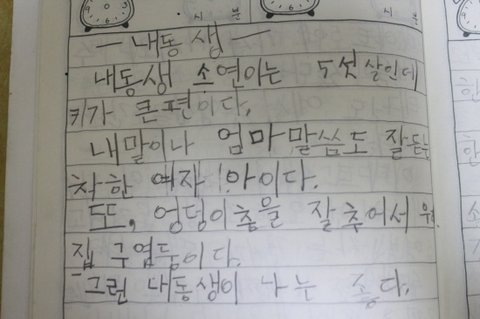 시 분 시 분
— 내동생 —
내동생 소연이는 5섯살인데
키가 큰편이다.
내말이나 엄마말씀도 잘듣는
착한 여자 아이다.
또, 엉덩이춤을 잘추어서 우리
집 구염둥이다.
그런 내동생이 나는 좋다.